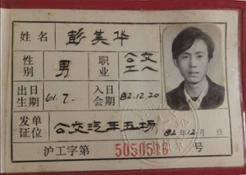 姓名 彭美华
性别 男 职业 公交工人
出生日期 61.7. 入会日期 82.12.20
发证单位 公交汽车五场
82年12月 日
沪工字第 5050516 号